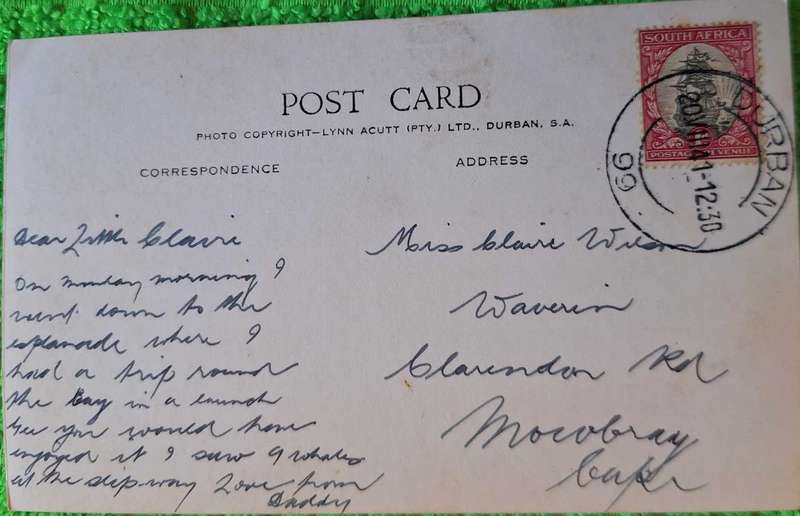 SOUTH AFRICA
POSTAGE REVENUE
DURBAN
20 VIII 41-12:30
99
POST CARD
PHOTO COPYRIGHT—LYNN ACUTT (PTY.) LTD., DURBAN, S.A.
CORRESPONDENCE
ADDRESS
Dear Little Claire
On Monday morning I
went down to the
esplanade where I
had a trip round
the Bay in a launch
Gee you would have
enjoyed it I saw 9 whales
at the slip-way Love from
Daddy
Miss Claire Wilson
Waverin
Clarendon Rd
Mowbray
Cape